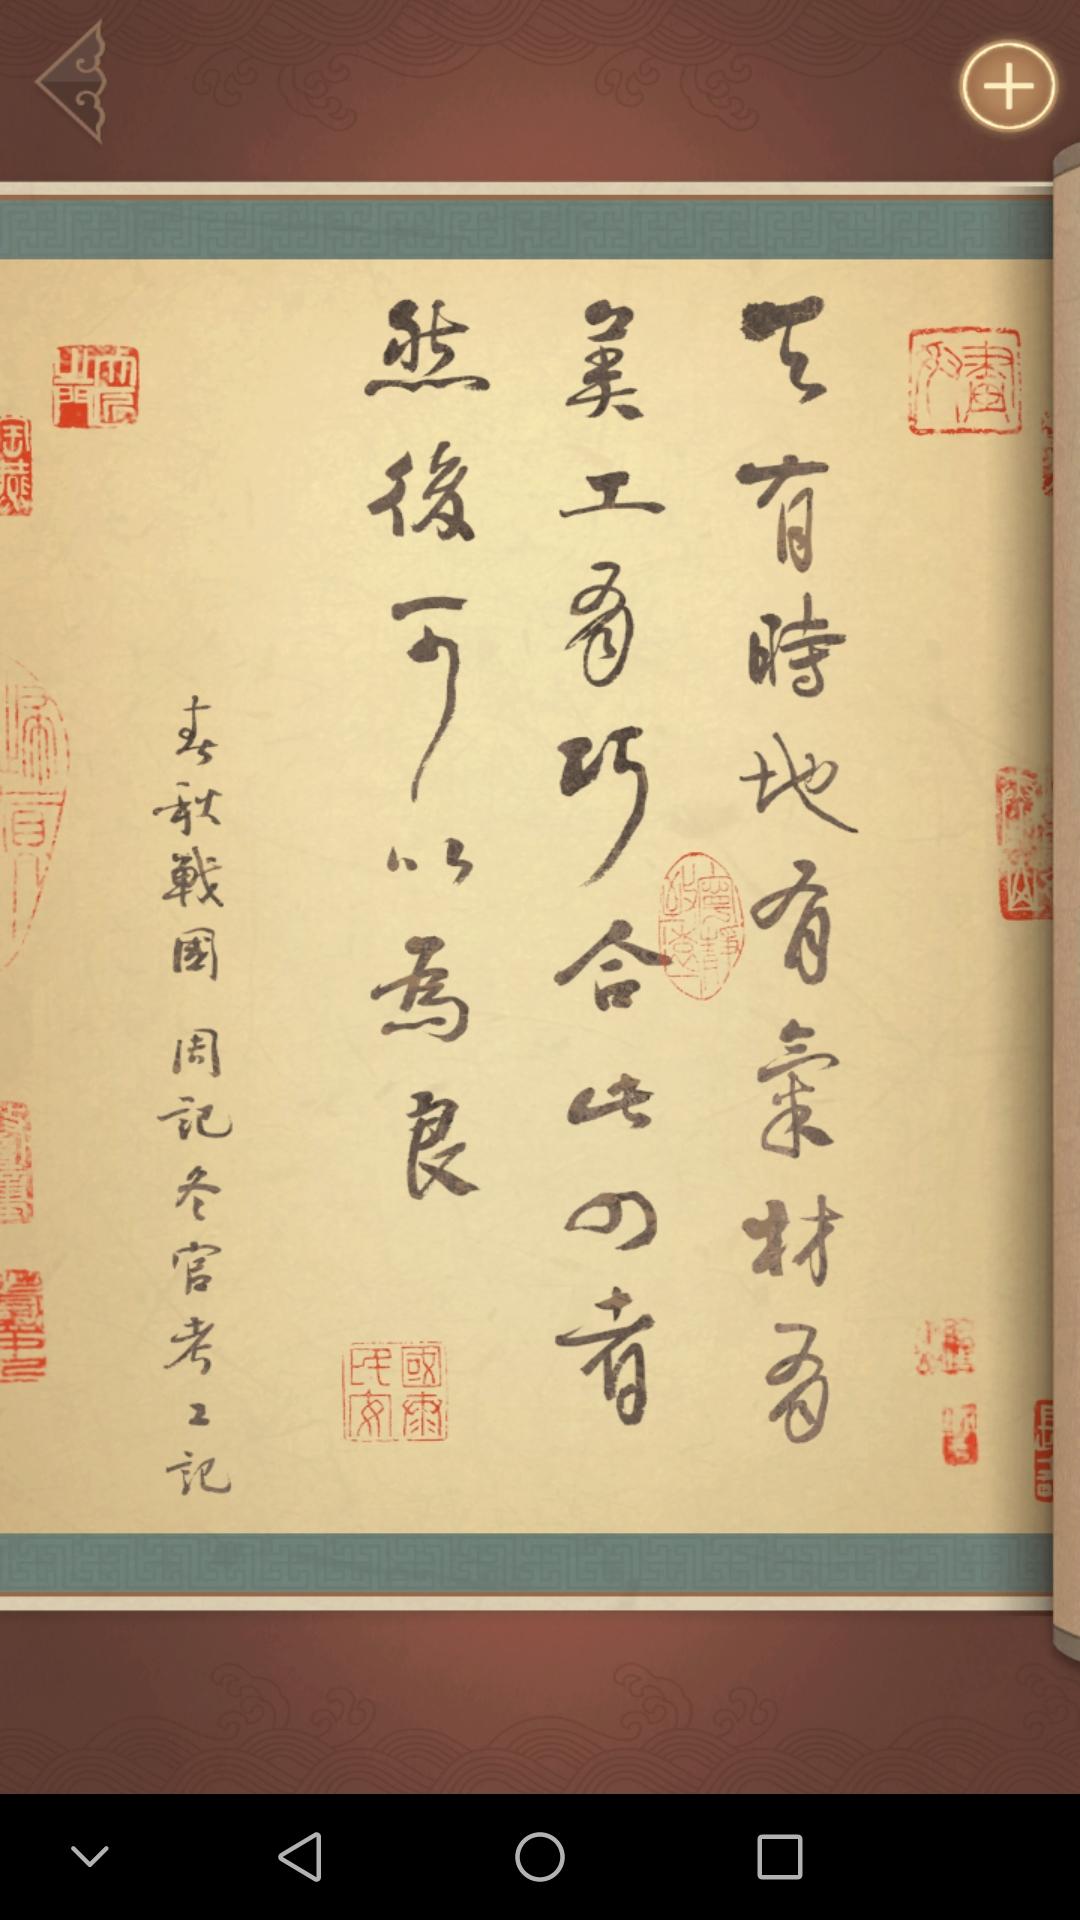 天有時地有氣材有
美工有巧合此四者
然後可以為良
春秋戰國 周記冬官考工記
國泰民安